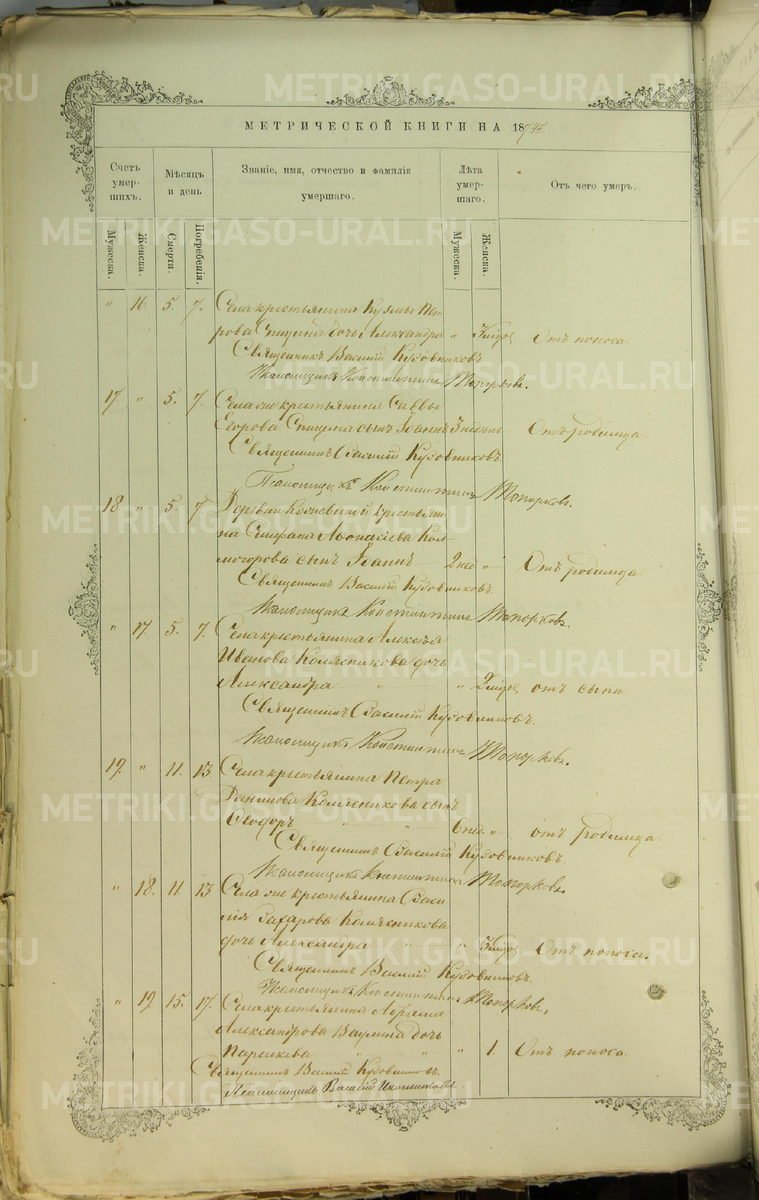 МЕТРИЧЕСКОЙ КНИГИ НА 187
Счетъ умерших. Мѣсяцъ и день Званіе, имя, отчество и фамилія умершаго. Лѣта умершаго. Отъ чего умеръ.
Мужеска. Женска. Смерти. Погребенія. Мужеска. Женска.
" 16. 5. 7. Села крестьянина Кузьмы Пет-
рова дочь Александра " Отъ поноса.
Священникъ Василій Кудовников
Псаломщикъ Константинъ Топорковъ.
17. " 5. 7. Села же крестьянина Саввы
Егорова сынъ Іоаннъ 3 недѣли Отъ родимца
Священникъ Василій Кудовниковъ
Псаломщикъ Константинъ Топорковъ.
18 " 5. 7 Деревни крестьяни-
на Стефана Аѳонасіева Кол-
могорова сынъ Іоаннъ 2 нед " Отъ родимца.
Священникъ Василій Кудовниковъ.
Псаломщикъ Константинъ Топорковъ.
" 17 5. 7. Села крестьянина Алексѣя
Иванова Колясникова дочь
Александра " " отъ сыпи
Священникъ Василій Кудовниковъ.
Псаломщикъ Константинъ Топорковъ.
19. " 11. 13 Села крестьянина Петра
Данилова Колясникова сынъ
Ѳеодоръ 6 нед. " отъ родимца.
Священникъ Василій Кудовниковъ.
Псаломщикъ Константинъ Топорковъ.
" 18. 11. 13 Села же крестьянина Васи
лія Захарова Колясникова
дочь Александра " " Отъ поноса.
Священникъ Василій Кудовниковъ.
Псаломщикъ Константинъ Топорковъ,
" 19 15. 17. Села крестьянина Абрама
Александрова Ваулина дочь
Параскева " " " 1. Отъ поноса.
Священникъ Василій Кудовниковъ.
Псаломщикъ Василій
METRIKI.GASO-URAL.RU